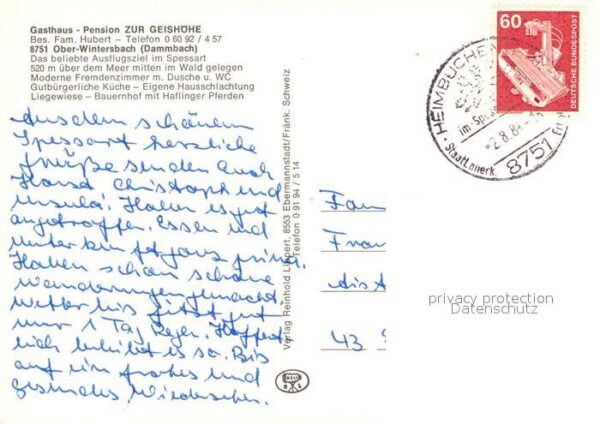 Gasthaus - Pension ZUR GEISHÖHE
Bes. Fam. Hubert – Telefon 0 60 92 / 4 57
8751 Ober-Wintersbach (Dammbach)
Das beliebte Ausflugsziel im Spessart
520 m über dem Meer mitten im Wald gelegen
Moderne Fremdenzimmer m. Dusche u. WC
Gutbürgerliche Küche – Eigene Hausschlachtung
Liegewiese – Bauernhof mit Haflinger Pferden
Aus dem schönen
Spessart herzliche
Grüße senden Euch
Hans, Christoph und
Ursula. Haben es gut
angetroffen. Essen und
Unterkunft ganz prima.
Haben schon schöne
Wanderungen gemacht.
Wetter bis jetzt gut
nur 1 Tag Regen. Hoffent
lich bleibt es so. Bis
auf ein frohes und
gesundes Wiedersehen.
Verlag Reinhold Lippert, 8553 Ebermannstadt/Fränk. Schweiz
Telefon 0 91 94 / 5 14
60
DEUTSCHE BUNDESPOST
HEIMBUCHEN
im Spessart
-2.8.8
Staatl. anerk.
8751
Fam
Frau
43
privacy protection
Datenschutz